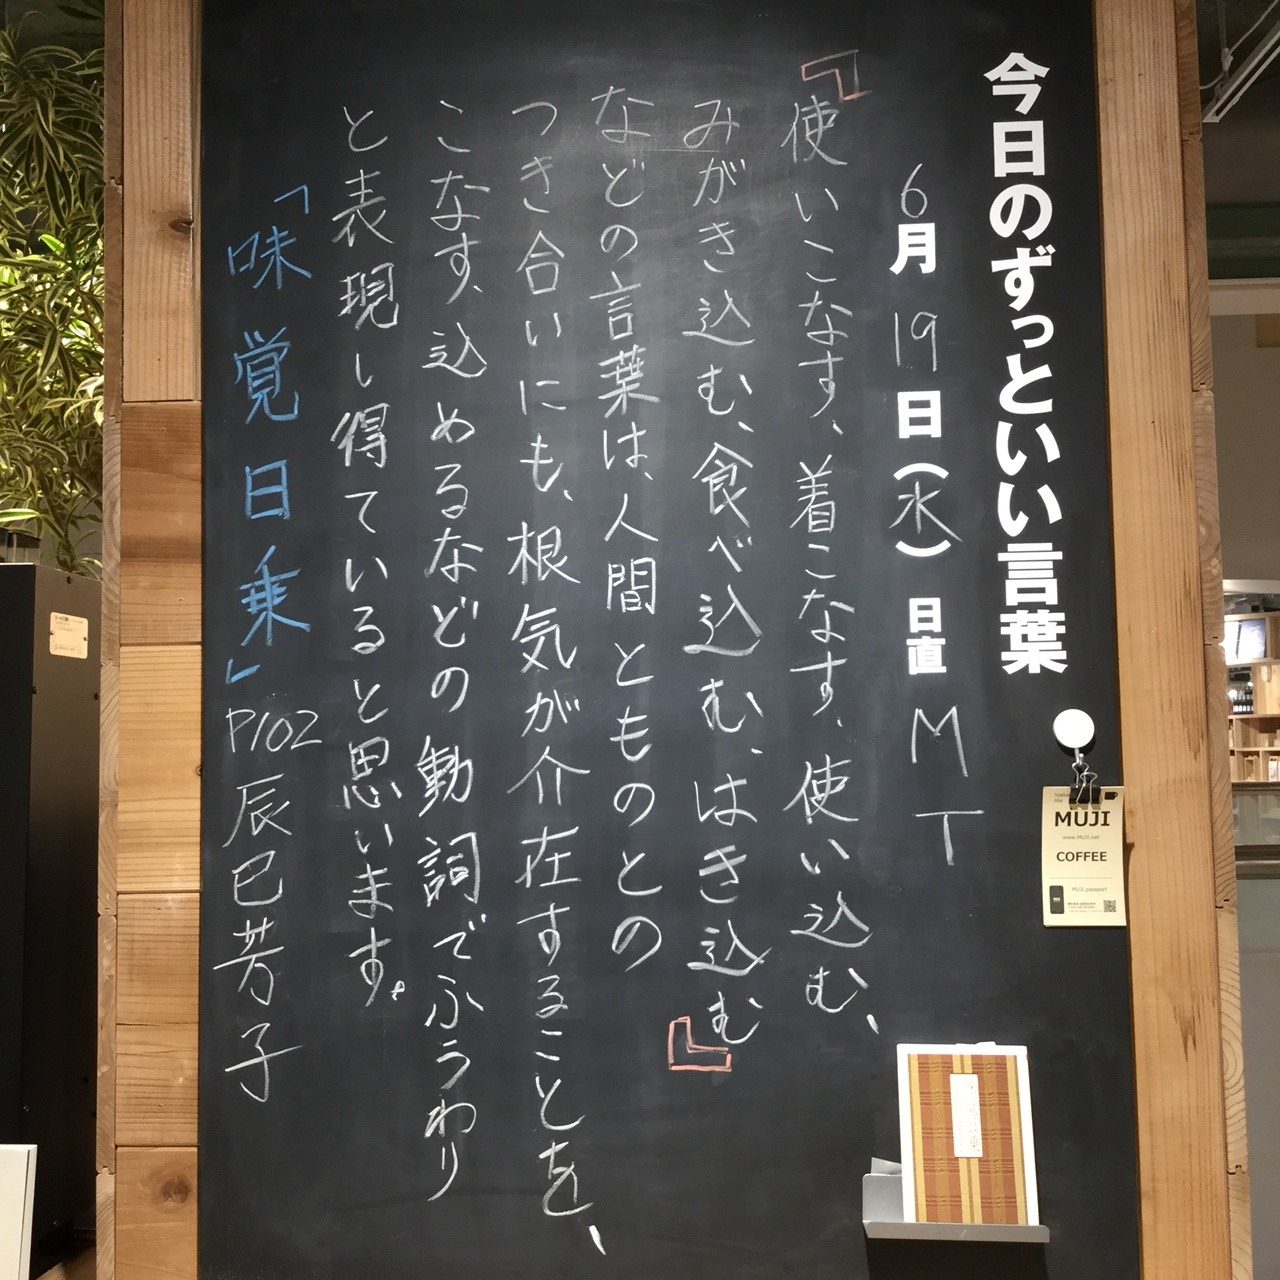 今日のずっといい言葉
6月19日(水)日直 MT
『使いこなす、着こなす、使い込む、
みがき込む、食べ込む、はき込む』
などの言葉は、人間とものとの
つき合いにも、根気が介在することを、
こなす、込めるなどの動詞でふうわり
と表現し得ていると思います。
「味覚日乗」P102 辰巳芳子
MUJI
www.MUJI.net
COFFEE
MUJI passport